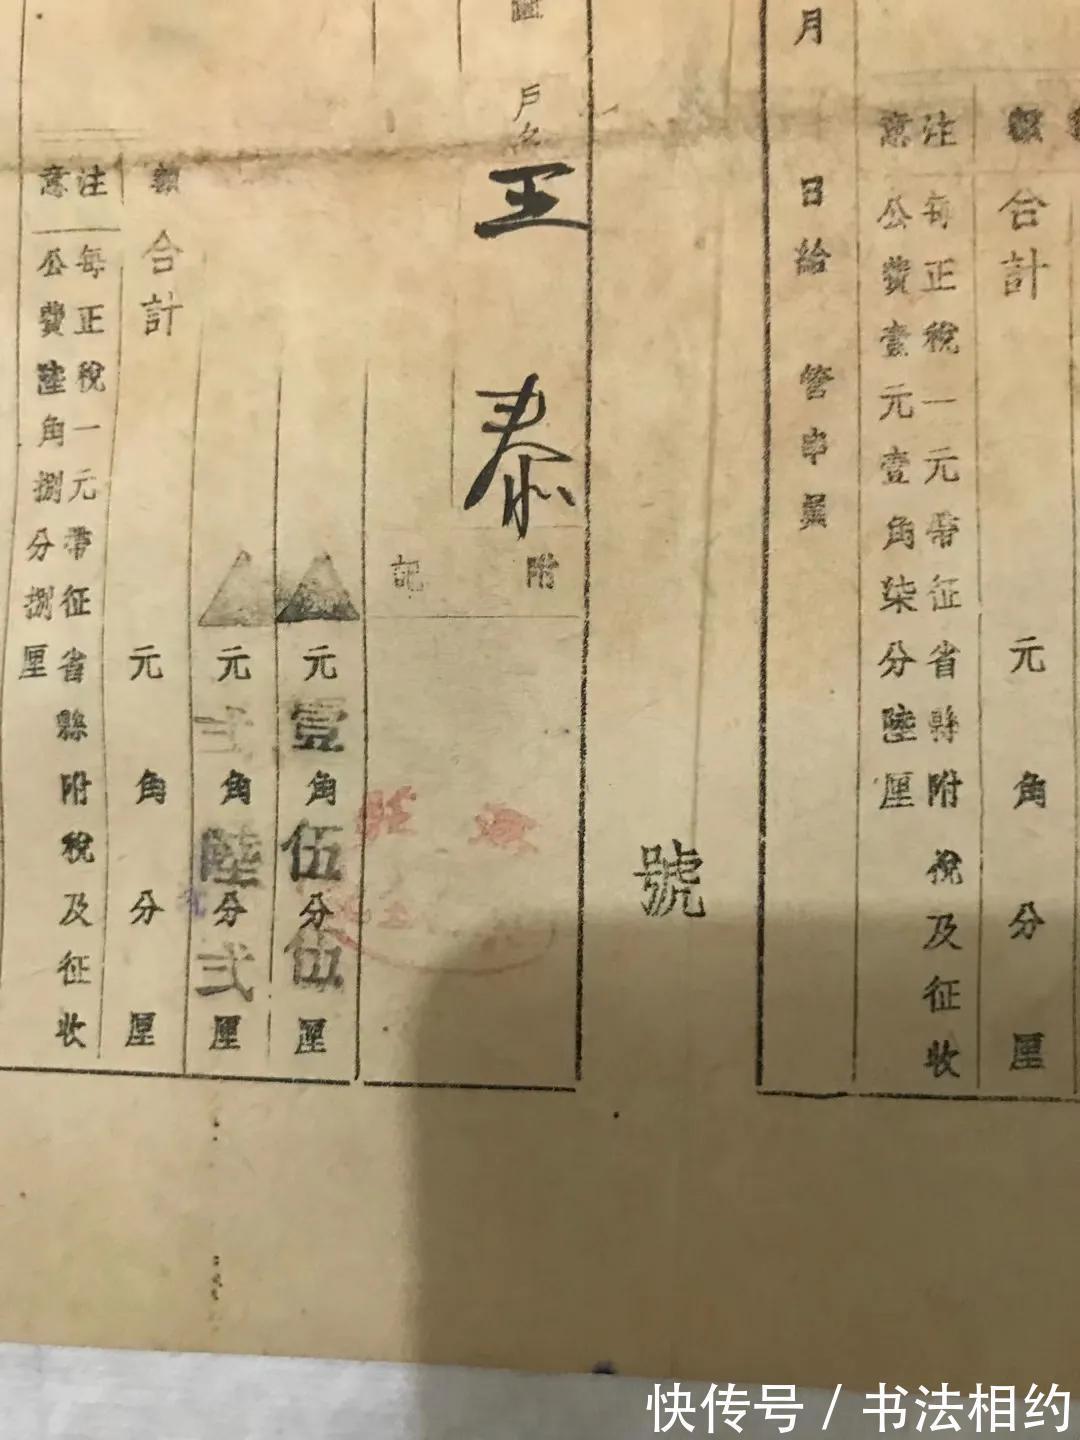 月
日給
管串員
額
合計
元角分厘
注意
每正稅一元帶征省縣附稅及征收
公費壹元壹角柒分陸厘
號
戶名
王泰
附記
元壹角伍分伍厘
元弍角陸分弍厘
額
合計
元角分厘
注意
每正稅一元帶征省縣附稅及征收
公費陸角捌分捌厘
快传号 / 书法相约